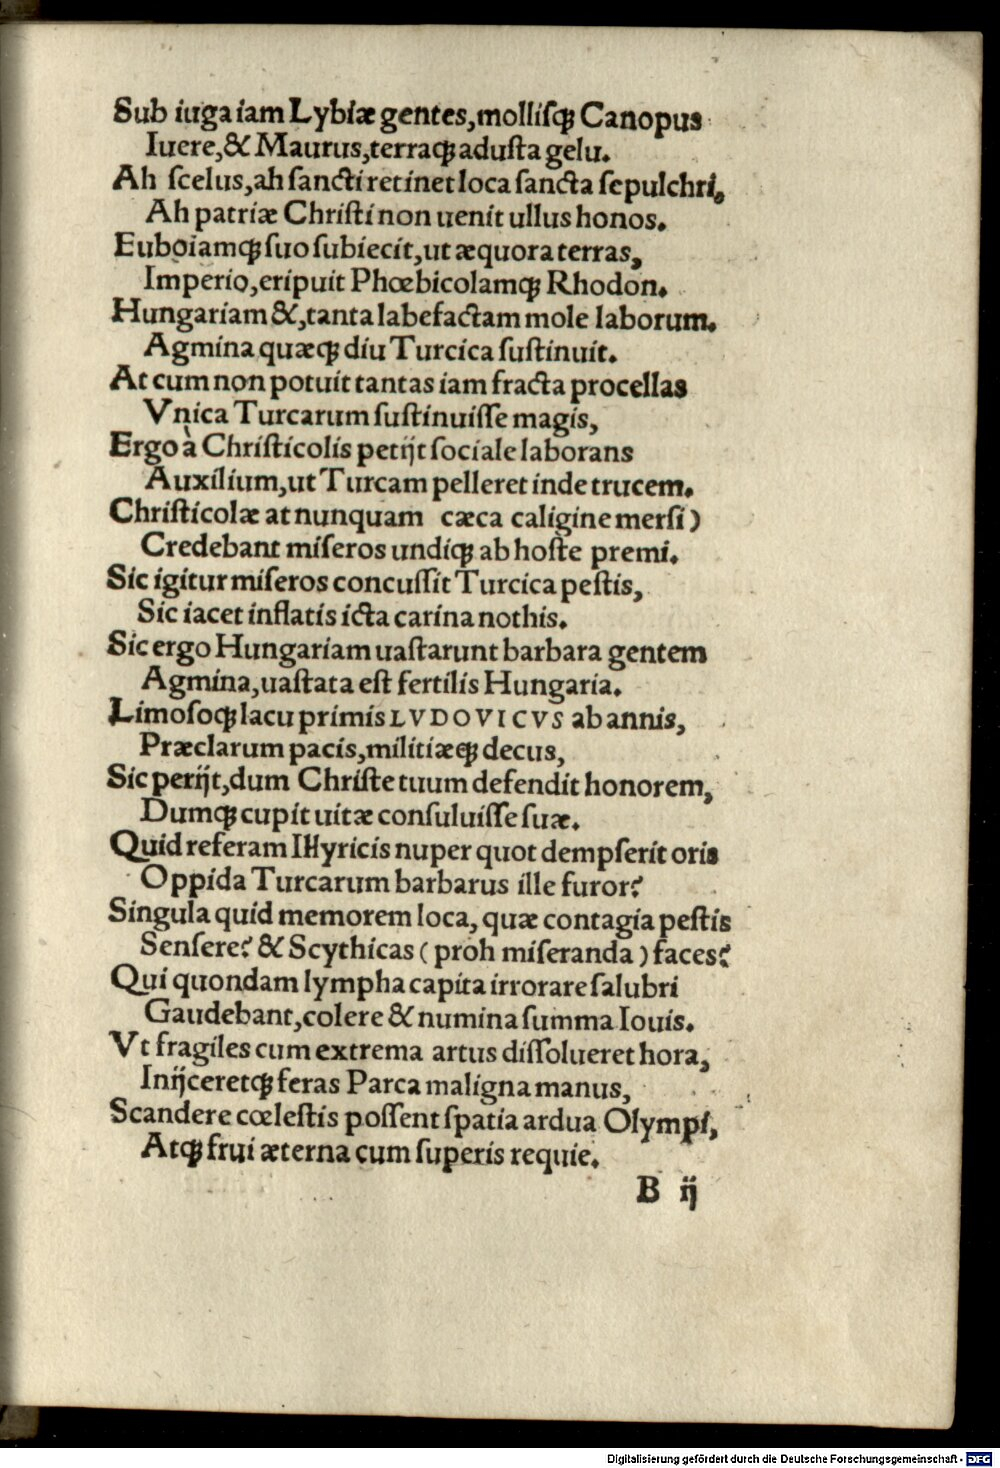 Sub iuga iam Lybiæ gentes, mollisq́; Canopus
Iuere, & Maurus, terraq́; adusta gelu.
Ah scelus, ah sancti retinet loca sancta sepulchri,
Ah patriæ Christi non uenit ullus honos.
Euboiamq́; suo subiecit, ut æquora terras,
Imperio, eripuit Phœbicolamq́; Rhodon.
Hungariam &, tanta labefactam mole laborum.
Agmina quæq́; diu Turcica sustinuit.
At cum non potuit tantas iam fracta procellas
Vnica Turcarum sustinuisse magis,
Ergo à Christicolis petijt sociale laborans
Auxilium, ut Turcam pelleret inde trucem.
Christicolæ at nunquam cæca caligine mersi)
Credebant miseros undiq́; ab hoste premi.
Sic igitur miseros concussit Turcica pestis,
Sic iacet inflatis icta carina nothis.
Sic ergo Hungariam uastarunt barbara gentem
Agmina, uastata est fertilis Hungaria.
Limosoq́; lacu primis LVDOVICVS ab annis,
Præclarum pacis, militiæq́; decus,
Sic perijt, dum Christe tuum defendit honorem,
Dumq́; cupit uitæ consuluisse suæ.
Quid referam Illyricis nuper quot dempserit oris
Oppida Turcarum barbarus ille furor?
Singula quid memorem loca, quæ contagia pestis
Sensere? & Scythicas (proh miseranda) faces?
Qui quondam lympha capita irrorare salubri
Gaudebant, colere & numina summa Iouis.
Vt fragiles cum extrema artus dissolueret hora,
Inijceretq́; feras Parca maligna manus,
Scandere cœlestis possent spatia ardua Olympi,
Atq́; frui æterna cum superis requie.
B ij
Digitalisierung gefördert durch die Deutsche Forschungsgemeinschaft - DFG